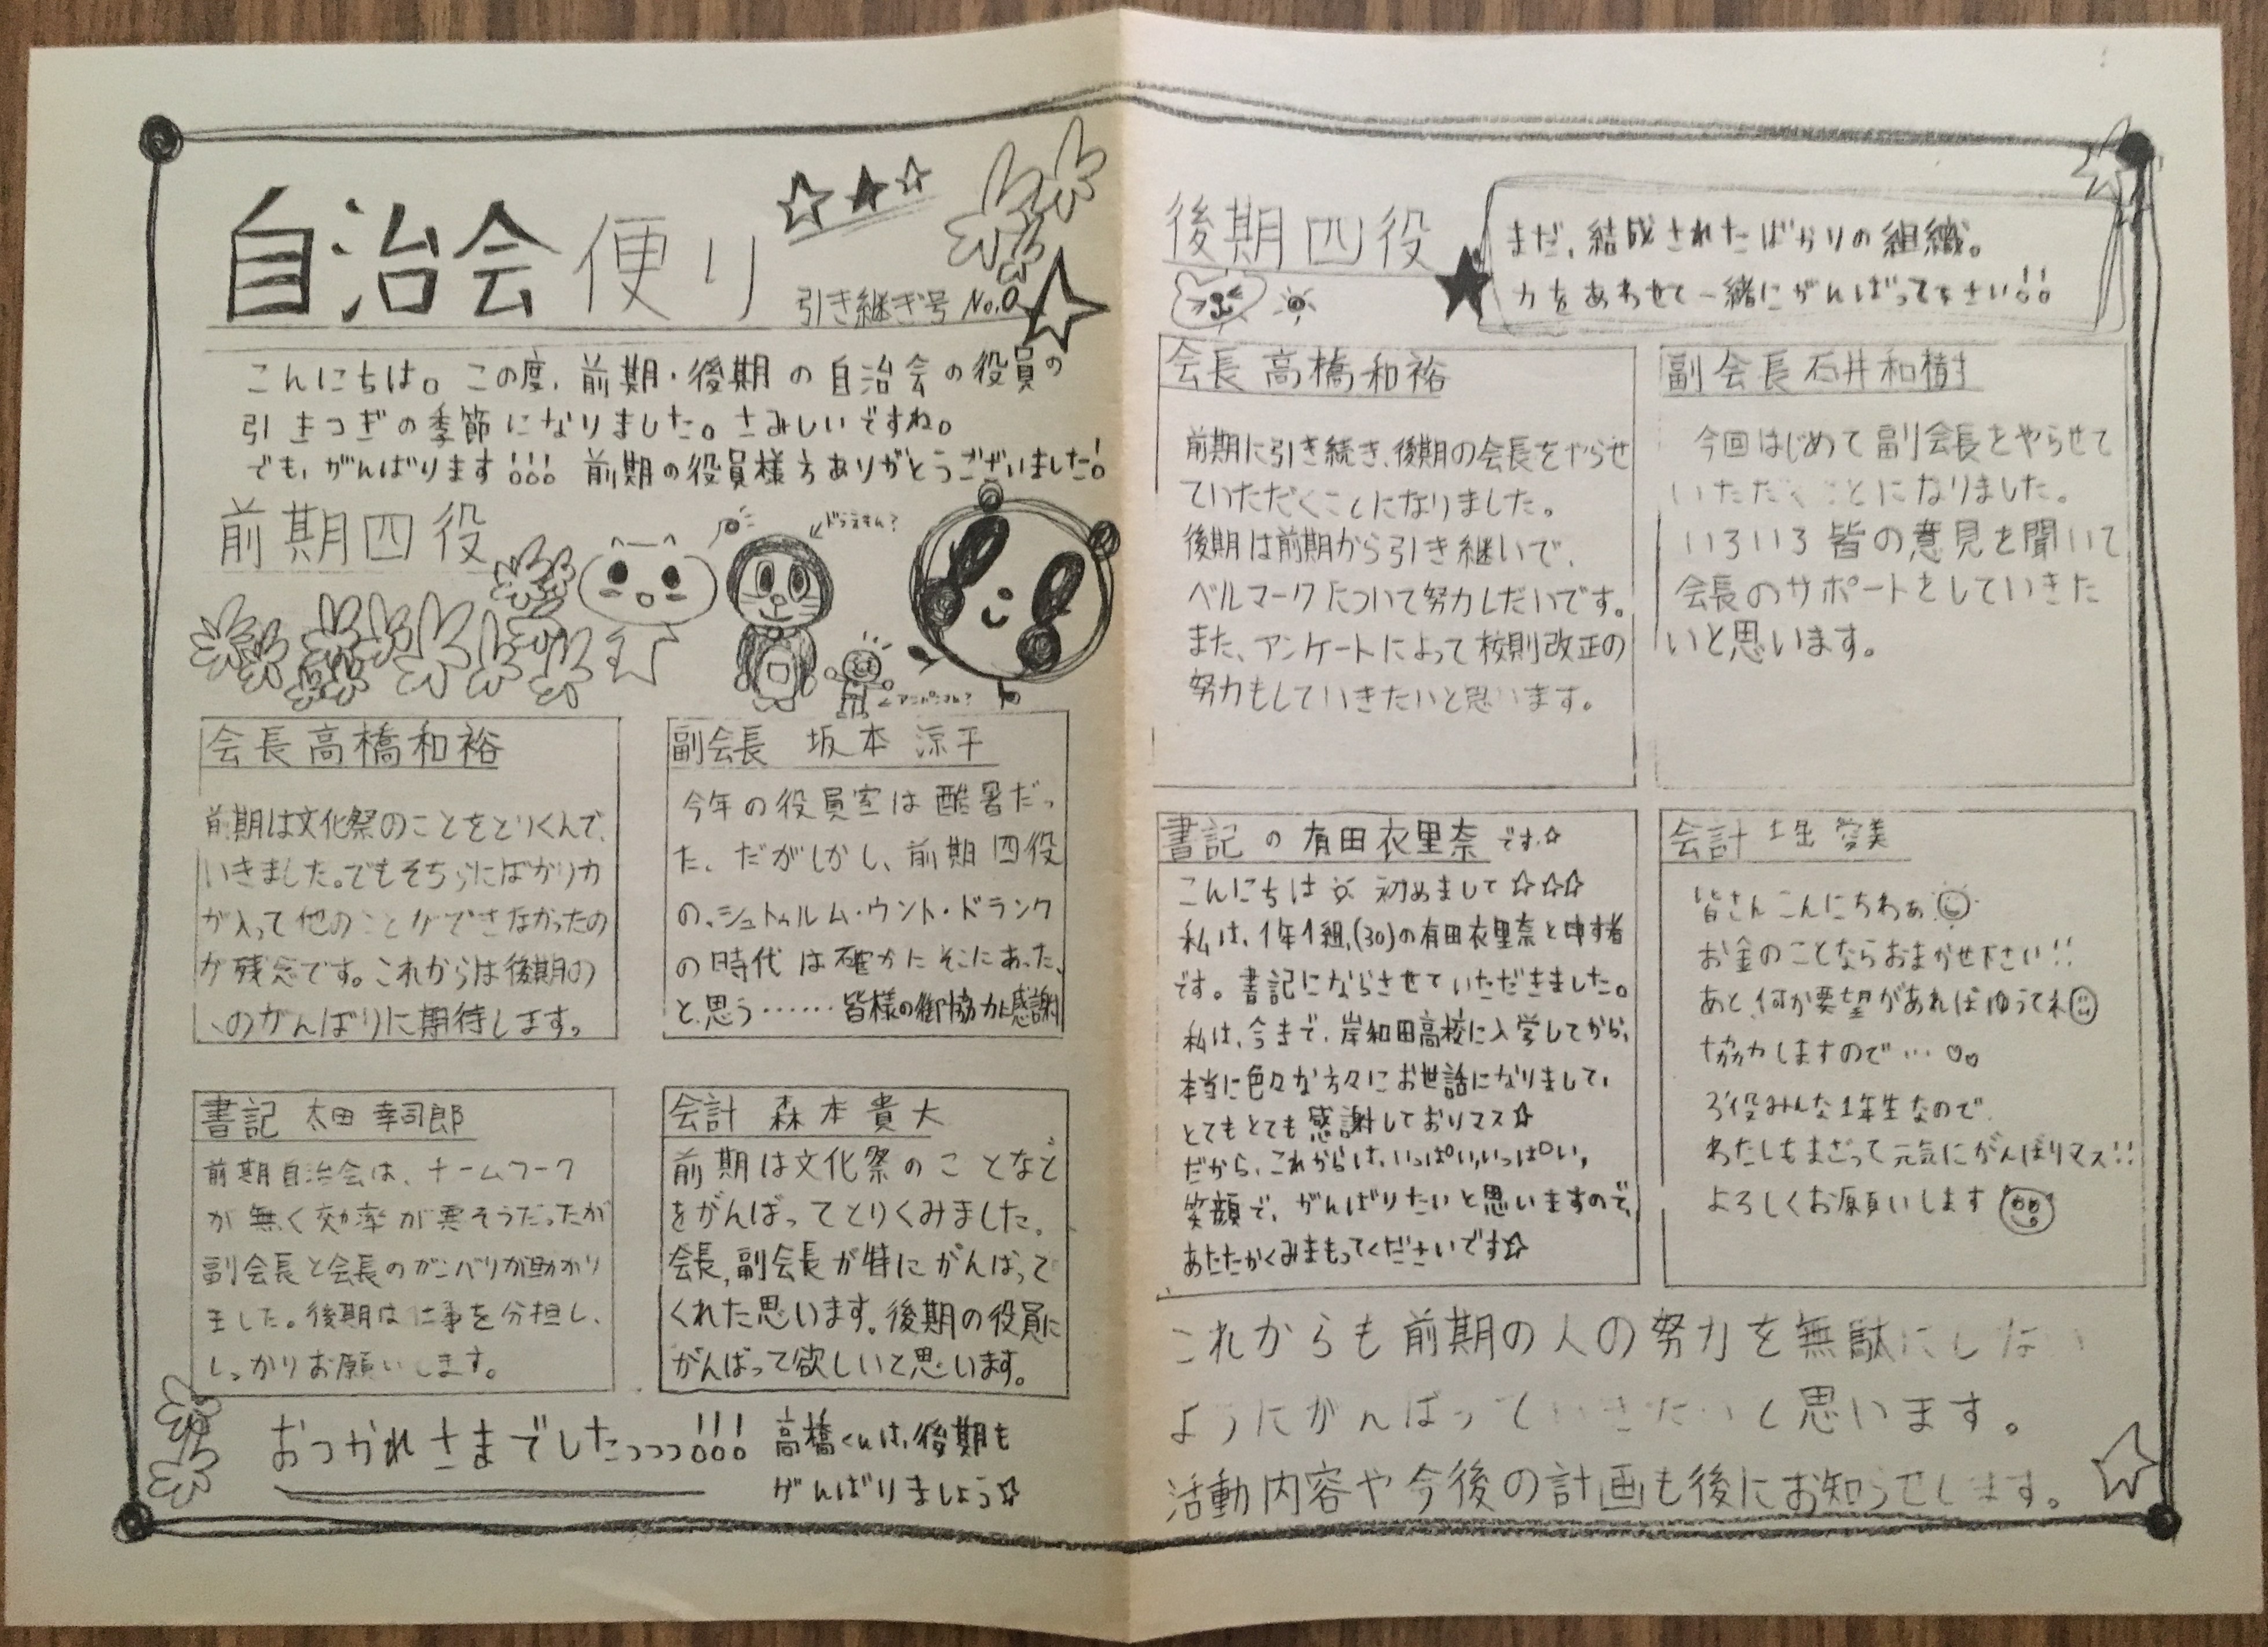 自治会便り
引き継ぎ号 No.0
こんにちは。この度、前期・後期の自治会の役員の
引きつぎの季節になりました。さみしいですね。
でも、がんばります!!! 前期の役員様方ありがとうございました!
前期四役
ドラえもん?
アンパンマン?
会長 高橋和裕
前期は文化祭のことをとりくんで、
いきました。でもそちらにばかり力
が入って他のことができなかったの
が残念です。これからは後期の
のがんばりに期待します。
副会長 坂本 涼平
今年の役員室は酷暑だっ
た、だがしかし、前期四役
の、シュトゥルム・ウント・ドランク
の時代は確かにそこにあった、
と思う……皆様の御協力に感謝
書記 太田 幸司郎
前期自治会は、チームワーク
が無く効率が悪そうだったが
副会長と会長のガンバリが助かり
ました。後期は仕事を分担し、
しっかりお願いします。
会計 森本貴大
前期は文化祭のことなど
をがんばってとりくみました。
会長、副会長が特にがんばって
くれた思います。後期の役員に
がんばって欲しいと思います。
おつかれさまでしたっっっ!!!
高橋くんは、後期も
がんばりましょう☆
後期四役
まだ、結成されたばかりの組織。
力をあわせて一緒にがんばって下さい!!
会長 高橋和裕
前期に引き続き、後期の会長をやらせ
ていただくことになりました。
後期は前期から引き継いで、
ベルマークについて努力しだいです。
また、アンケートによって校則改正の
努力もしていきたいと思います。
副会長 石井和樹
今回はじめて副会長をやらせて
いただくことになりました。
いろいろ皆の意見を聞いて
会長のサポートをしていきた
いと思います。
書記 の 有田衣里奈 です☆
こんにちは 初めまして☆☆☆
私は、1年1組、(30)の有田衣里奈と申す者
です。書記にならさせていただきました。
私は、今まで、岸和田高校に入学してから、
本当に色々な方々にお世話になりまして、
とてもとても感謝しておりマス☆
だから、これからは、いっぱい、いっぱい、
笑顔で、がんばりたいと思いますので、
あたたかくみまもってくださいです☆
会計 土堀 愛美
皆さんこんにちわぁ
お金のことならおまかせ下さい!!
あと、何か要望があればゆうてネ
協力しますので…♡♡
3役みんな1年生なので、
わたしもまざって元気にがんばりマス!!
よろしくお願いします
これからも前期の人の努力を無駄にしない
ようにがんばっていきたいと思います。
活動内容や今後の計画も後にお知らせします。